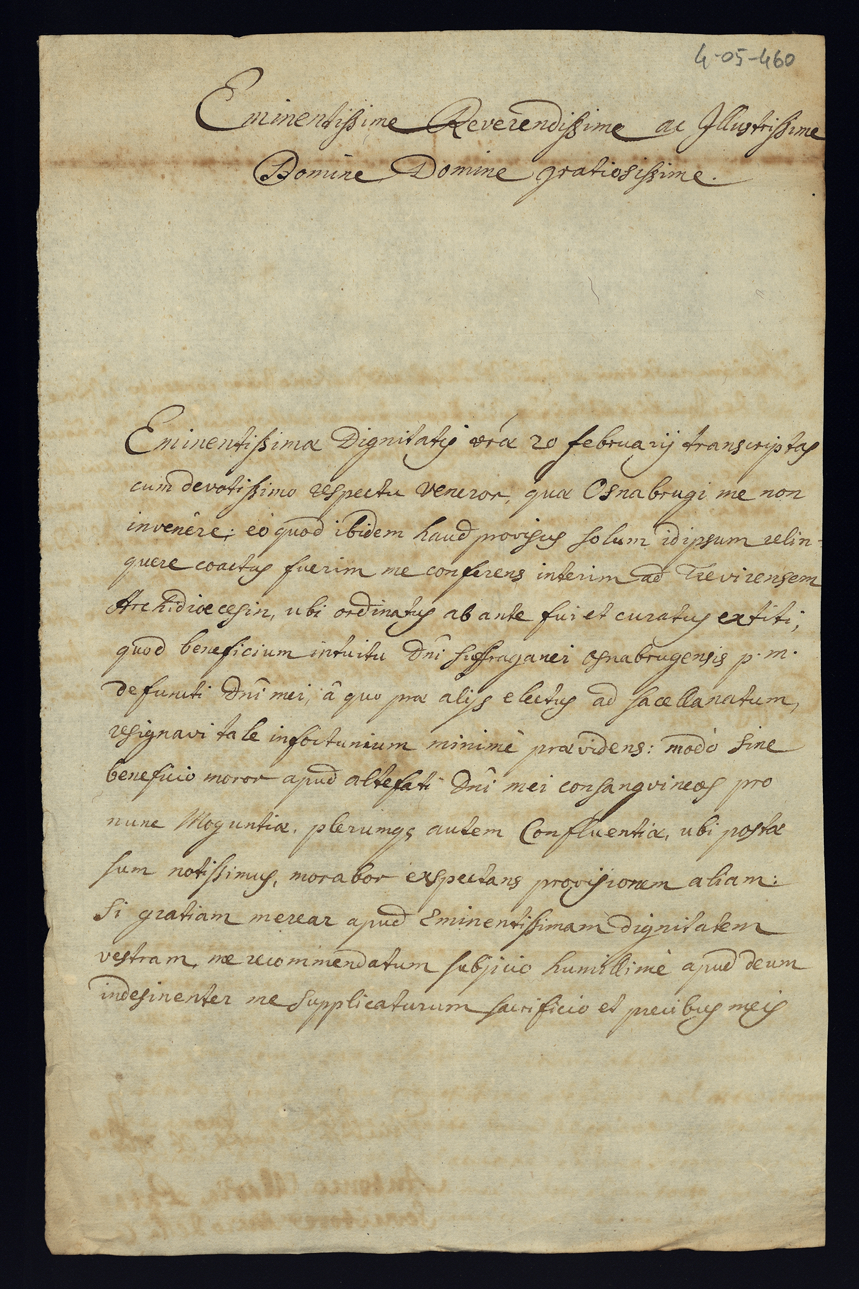 4-05-460
Eminentissime Reverendissime ac Illustrissime
Domine Domine gratiosissime.
Eminentissimæ Dignitatis vr̃æ 20 februarij transcriptas
cum devotissimo respectu veneror, quæ Osnabrugi me non
invenêre; eò quod ibidem haud provisus solum idipsum relin-
quere coactus fuerim me conferens interim ad Trevirensem
Archidiœcesin, ubi ordinatus ab ante fui et curatus extiti;
quod beneficium intuitu Dñi suffraganei osnabrugensis p. m.
defuncti Dñi mei, â quo præ alijs electus ad sacellanatum,
resignavi tale infortunium minimè prævidens: modò sine
beneficio moror apud altefati Dñi mei consangvineos pro
nunc Moguntiæ, plerumq3 autem Confluentiæ, ubi postæ
sum notissimus, morabor exspectans provisionem aliam:
si gratiam merear apud Eminentissimam dignitatem
vestram, me recommendatum subjicio humillimè apud deum
indesinenter me supplicaturum sacrificio et precibus meis